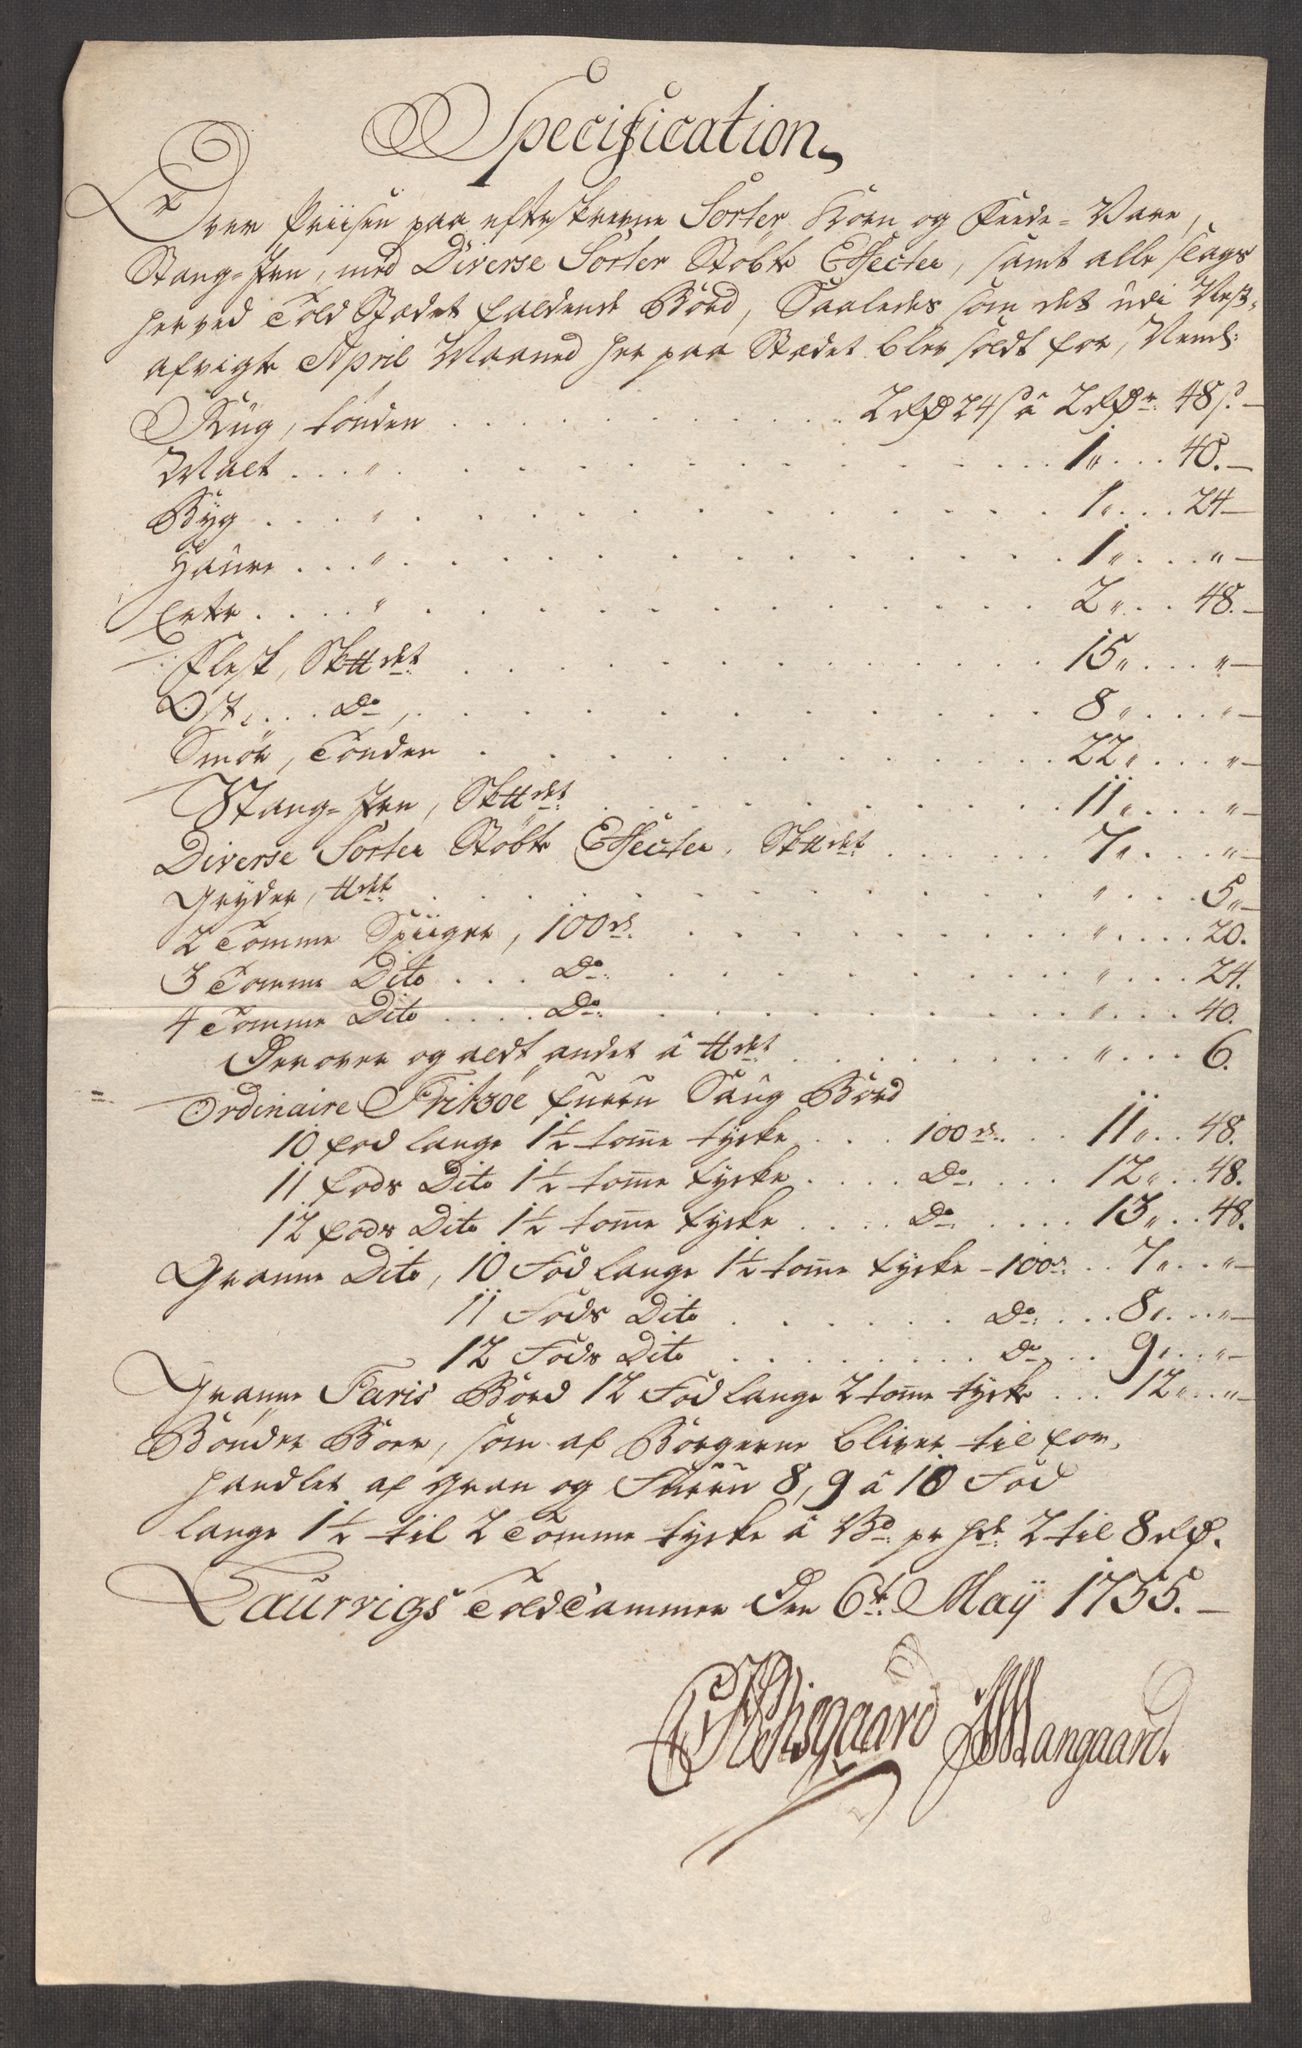 Specification
Over Priisen paa efterskrevne Sorter Korn og Feede-Vare,
Stang-Jrn, med Diverse Sorter Støbte Effecter, samt alle slags
herved Told Stædet faldende Bord, Saaledes som det udi Nest-
afvigte April Maaned her paa Stædet blev soldt for, Neml:
Rug, tønden . . . 2 rdr 24 s à 2 rdr: 48 s. —
Malt . . . " . . . 1 " . . . 40. —
Byg . . . " . . . 1 " . . . 24 —
Haure . . . " . . . 1 " . . . " —
Erter . . . " . . . 2 " . . . 48. —
Flesk, Sk℔det . . . 15 " . . . " —
Ost, . . . Do, . . . 8 " . . . " —
Smør, Tønden . . . 22 " . . . " —
Stang-Jrn, Sk℔det . . . 11 " . . . " —
Diverse Sorter Støbte Effecter, Sk℔det . . . 7 " . . . " —
Gryder, ℔det . . . " . . . 5 " —
2 Tomme Spiiger, 100de . . . " . . . 20.
3 Tomme Dito . . . Do . . . " . . . 24.
4 Tomme Dito . . . Do . . . " . . . 40.
Derover og aldt andet à ℔det . . . " . . . 6.
Ordinaire Fritzøe furru Saug Bord
10 fod lange 1½ tomme tycke . . . 100de . . . 11 " . . 48.
11 fods Dito 1½ tomme tycke . . . Do . . . 12 " . . 48.
12 fods Dito 1½ tomme tycke . . . Do . . . 13 " . . 48.
Granne Dito, 10 Fod lange 1½ tomme tycke - 100de . . 7 " . . " —
11 Fods Dito . . . Do . . . 8 " . . . " —
12 Fods Dito . . . Do . . . 9 " . . . " —
Granne Faris Bord 12 Fod lange 2 tomme tycke . . . 12 " . . " —
Bønder Bord, som af Borgerne bliver til for-
handlet af gran og Furru 8, 9 à 10 Fod
lange 1½ til 2 Tomme tycke à pr 2 til 8 rdr.
Laurvigs ToldCammer Den 6t: Maÿ 1755. —
Mangaard.